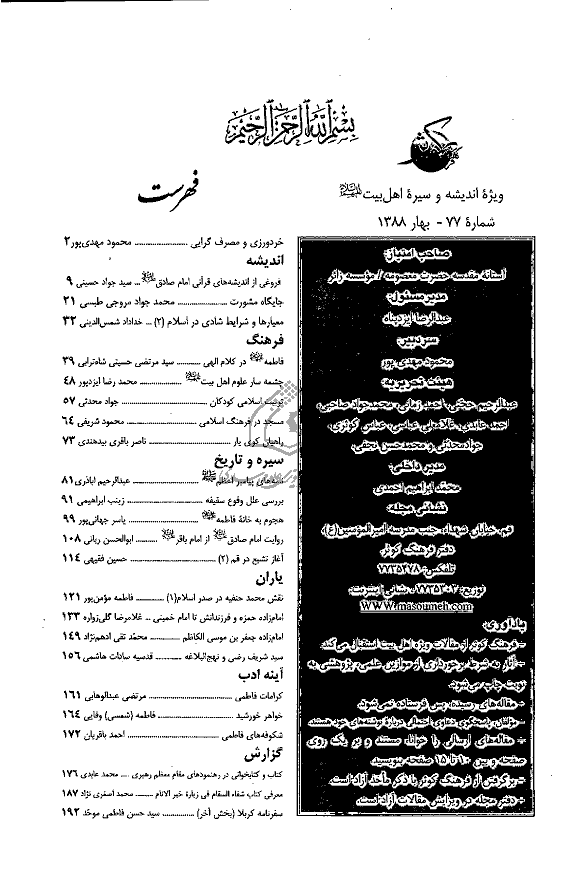 بسم الله الرحمن الرحیم
فرهنگ کوثر
ویژهٔ اندیشه و سیرهٔ اهل‌بیت علیهم‌السلام
شمارهٔ ۷۷ - بهار ۱۳۸۸
صاحب امتیاز:
آستانه مقدسه حضرت معصومه / مؤسسه زائر
مدیر مسئول:
عبدالرضا ایزدپناه
سردبیر:
محمود مهدی پور
هیئت تحریریه:
عبدالرحیم حجتی، احمد زمانی، محمدجواد صاحبی،
احمد عابدی، غلامعلی عباسی، عباس کوثری،
جواد محدثی و محمدحسن نجفی.
مدیر داخلی:
محمد ابراهیم احمدی
نشانی مجله:
قم، خیابان شهداء، جنب مدرسه امیرالمؤمنین(ع)
دفتر فرهنگ کوثر.
تلفکس: ۷۷۳۵۴۷۸
توزیع: ۷۷۳۵۴۰۲، نشانی اینترنت:
WWW.masoumeh.com
یادآوری:
- فرهنگ کوثر از مقالات ویژه اهل بیت استقبال می‌کند.
- آثار به شرط برخورداری از موازین علمی، پژوهشی به
نوبت چاپ می‌شود.
- مقاله‌های رسیده، پس فرستاده نمی‌شود.
- مؤلفان پاسخگوی دعاوی احتمالی دربارهٔ نوشته‌های خود هستند.
- مقاله‌های ارسالی را خوانا، مستند و بر یک روی
صفحه و بین ۱۰ تا ۱۵ صفحه بنویسید.
- برگرفتن از فرهنگ کوثر با ذکر مأخذ آزاد است.
- دفتر مجله در ویرایش مقالات آزاد است.
فهرست
خردورزی و مصرف گرایی ........................ محمود مهدی‌پور ۲
اندیشه
فروغی از اندیشه‌های قرآنی امام صادق علیه‌السلام ... سید جواد حسینی ۹
جایگاه مشورت ........................ محمد جواد مروجی طبسی ۲۱
معیارها و شرایط شادی در اسلام (۲) ... خداداد شمس‌الدینی ۳۲
فرهنگ
فاطمه در کلام الهی ............ سید مرتضی حسینی شاه‌ترابی ۳۹
چشمه سار علوم اهل بیت ........................ محمد رضا ایزدپور ۴۸
تربیت اسلامی کودکان ........................ جواد محدثی ۵۷
مسجد در فرهنگ اسلامی ........................ محمود شریفی ۶۴
راهیان کوی یار ........................ ناصر باقری بیدهندی ۷۳
سیره و تاریخ
نامه‌های پیامبر اعظم ........................ عبدالرحیم اباذری ۸۱
بررسی علل وقوع سقیفه ........................ زینب ابراهیمی ۹۱
هجوم به خانهٔ فاطمه ........................ یاسر جهانی‌پور ۹۹
روایت امام صادق از امام باقر ............ ابوالحسن ربانی ۱۰۸
آغاز تشیع در قم (۲) ........................ حسین فقیهی ۱۱۴
یاران
نقش محمد حنفیه در صدر اسلام(۱) ............ فاطمه مؤمن‌پور ۱۲۱
امام‌زاده حمزه و فرزندانش تا امام خمینی ... غلامرضا گلی‌زواره ۱۳۳
امام‌زاده جعفر بن موسی الکاظم ............ محمّد تقی ادهم‌نژاد ۱۴۹
سید شریف رضی و نهج‌البلاغه ............ قدسیه سادات هاشمی ۱۵۶
آینه ادب
کرامات فاطمی ........................ مرتضی عبدالوهابی ۱۶۱
خواهر خورشید ........................ فاطمه (شمسی) وفایی ۱۶۴
شکوفه‌های فاطمی ........................ احمد باقریان ۱۷۲
گزارش
کتاب و کتابخوانی در رهنمودهای مقام معظم رهبری .... محمد عابدی ۱۷۶
معرفی کتاب شفاء السقام فی زیارة خیر الانام ........ محمد اصغری نژاد ۱۸۷
سفرنامه کربلا (بخش آخر) ............ سید حسن فاطمی موحّد ۱۹۲